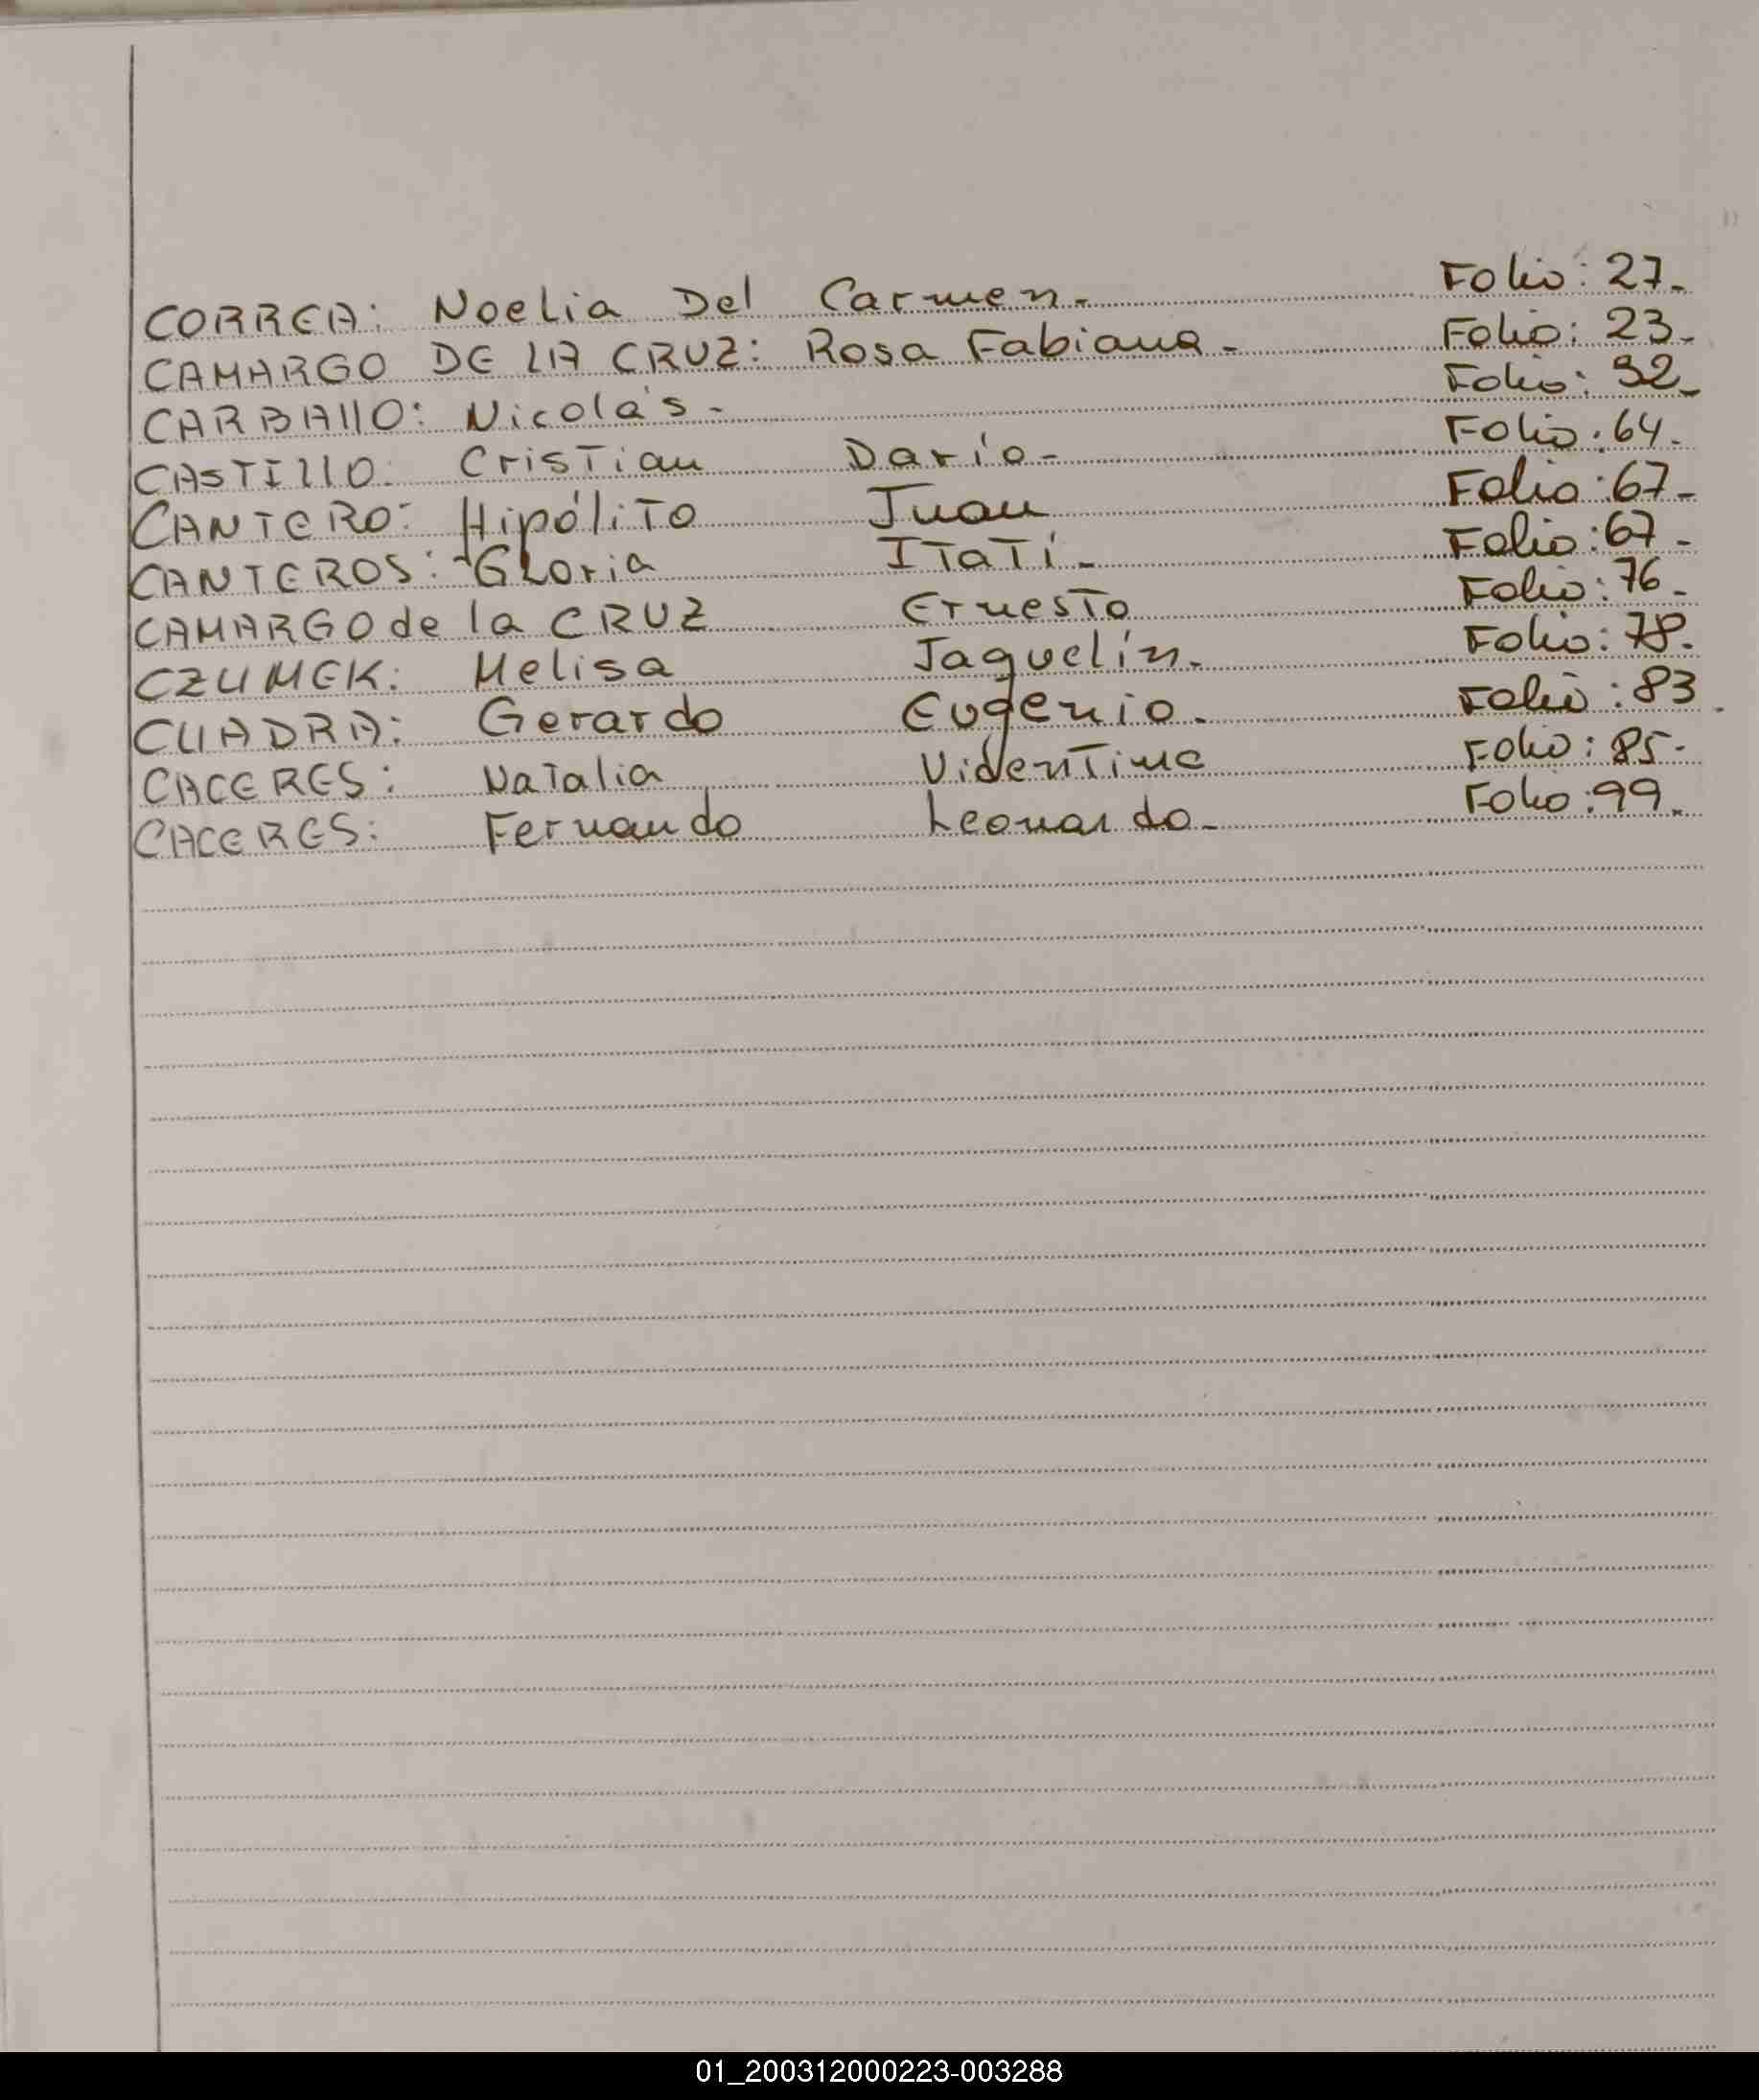 CORREA: Noelia Del Carmen. Folio: 27.
CAMARGO DE LA CRUZ: Rosa Fabiana. Folio: 23.
CARBAllO: Nicolás. Folio: 32
CASTIllO: Cristian Darío. Folio: 64.
CANTERO: Hipólito Juan Folio: 67.
CANTEROS: Gloria Itatí. Folio: 67.
CAMARGO de la CRUZ Ernesto Folio: 76.
CZUMEK: Melisa Jaquelín. Folio: 78.
CUADRA: Gerardo Eugenio. Folio: 83.
CACERES: Natalia Folio: 85.
CACERES: Fernando Leonardo. Folio: 99.
01_200312000223-003288